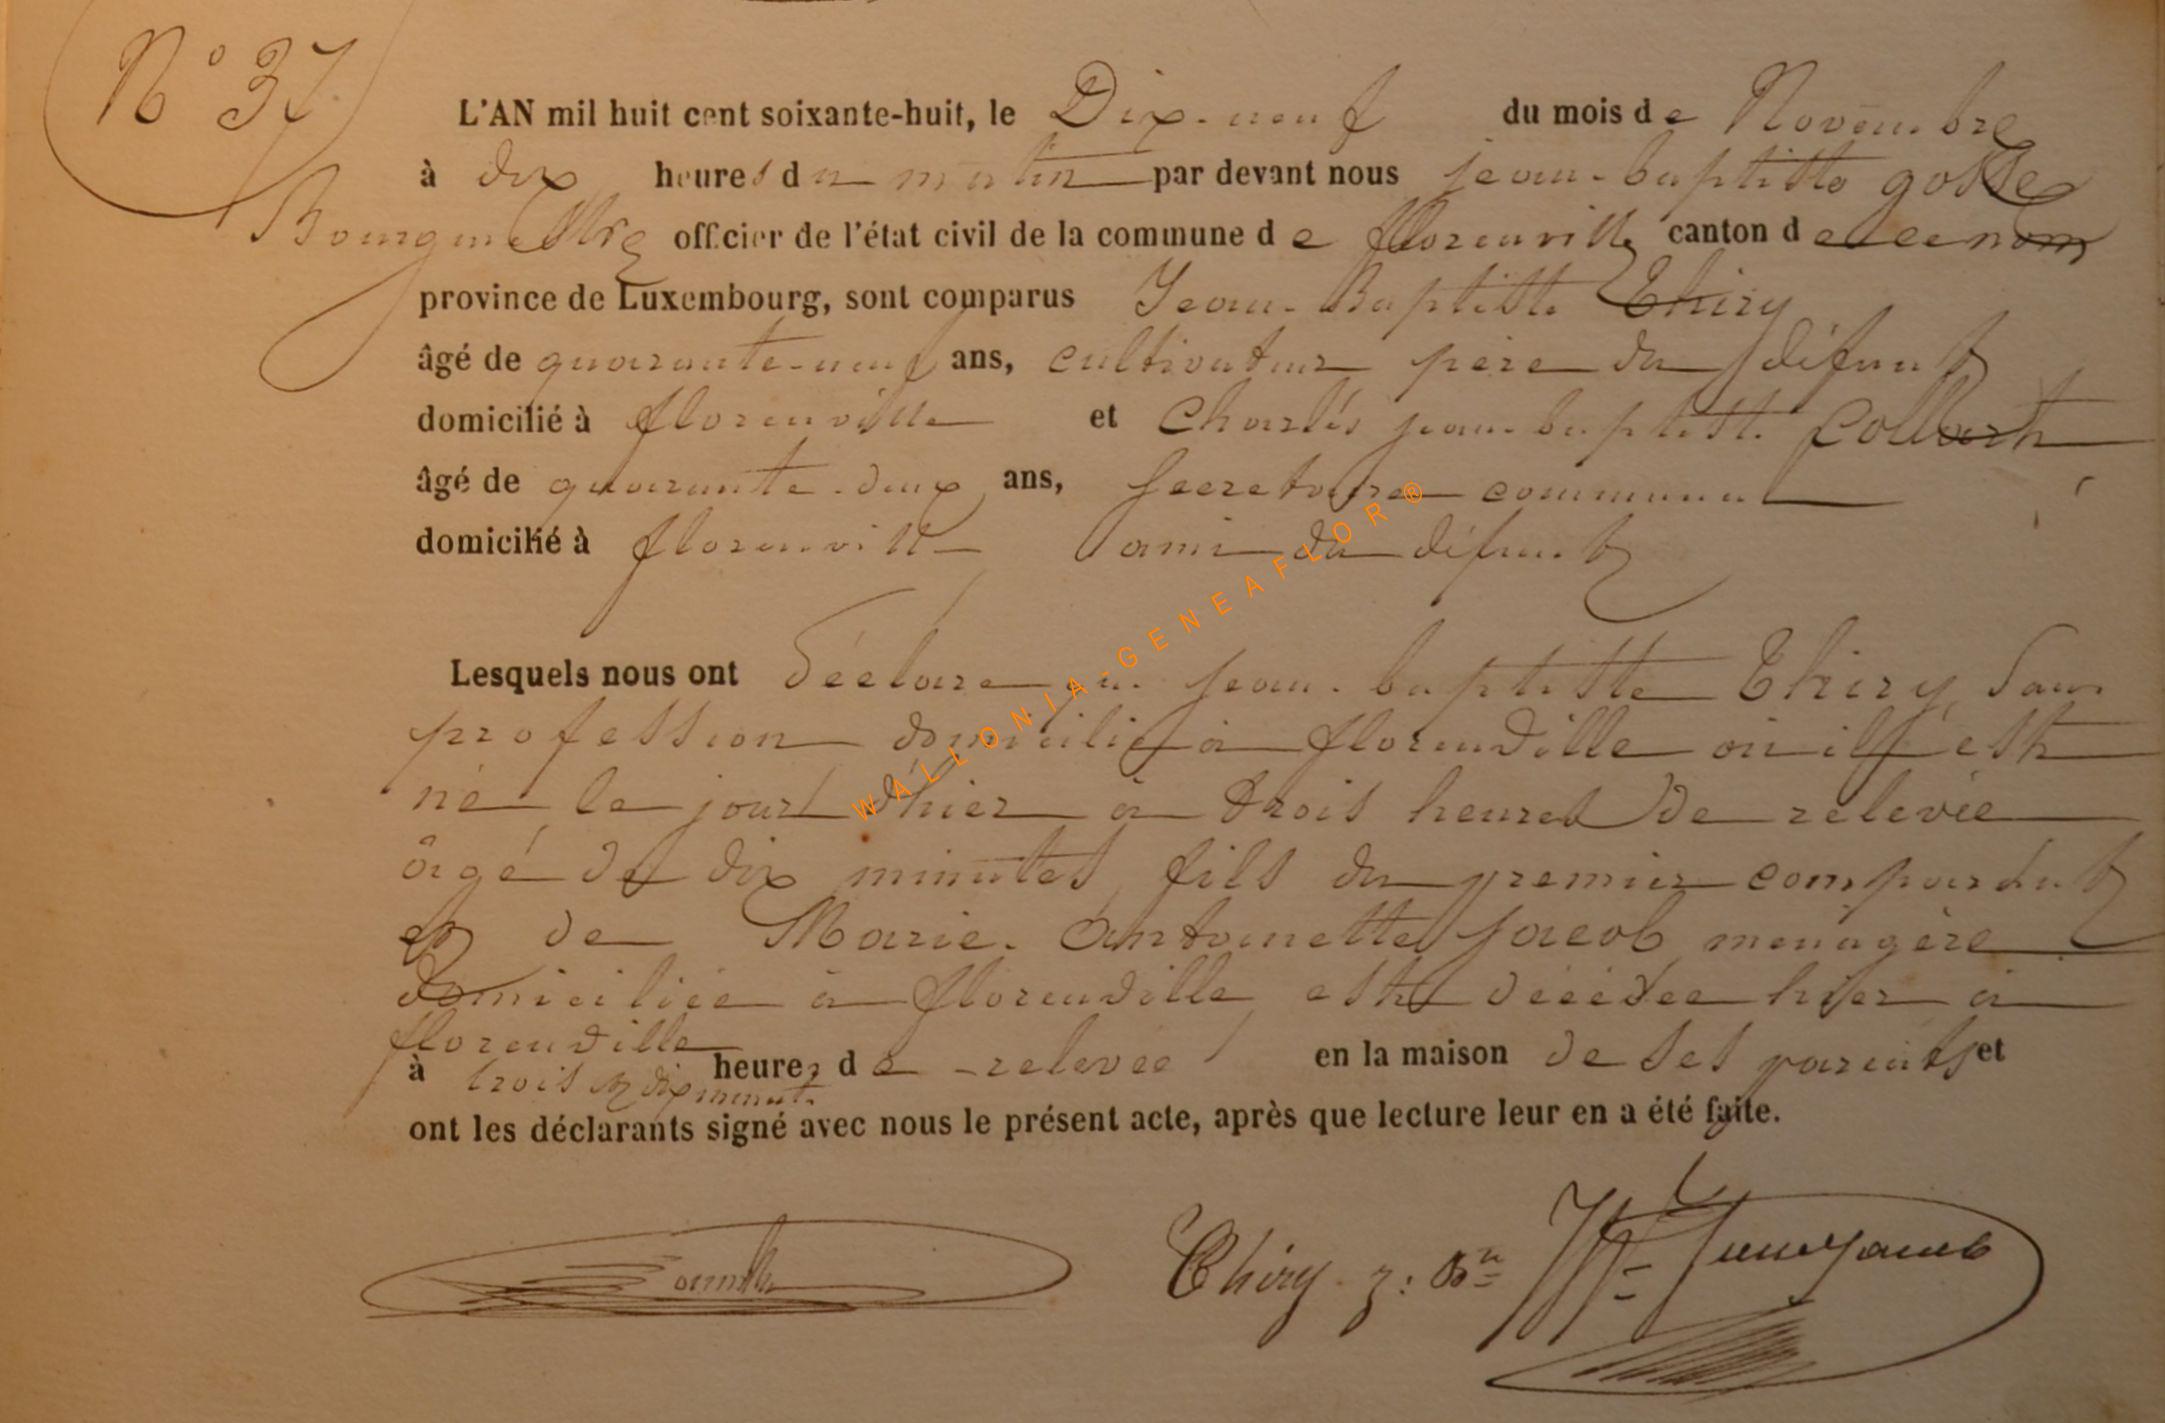 N° 37
L'AN mil huit cent soixante-huit, le Dix-neuf du mois de Novembre
à dix heures du matin par devant nous jean-baptiste gosse
Bourgmestre officier de l'état civil de la commune de florenville canton de ce nom
province de Luxembourg, sont comparus Jean-Baptiste Thiry
âgé de quarante-neuf ans, cultivateur père du défunt
domicilié à florenville et Charles jean-baptiste Collart
âgé de quarante-deux ans, secretaire communal
domicilié à florenville ami du défunt
Lesquels nous ont déclaré que jean-baptiste Thiry, sans
profession domicilié à florenville où il est
né le jour d'hier à trois heures de relevée
âgé de dix minutes, fils du premier comparant
et de Marie-Antoinette jacob, ménagère
domiciliée à florenville, est décédée hier à
florenville
à trois et dix minutes heures de relevée en la maison de ses parents et
ont les déclarants signé avec nous le présent acte, après que lecture leur en a été faite.
Thiry. j: Bte
WALLONIA-GENEAFLOR®